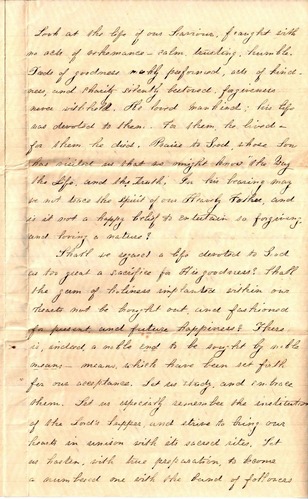 Look at the life of our Saviour, fraught with
no acts of vehemance - calm, trusting, humble.
Deeds of goodness meekly performed, acts of kind
ness, and charity silently bestowed, forgiveness
never withheld. He loved mankind; his life
was devoted to them. For them he lived -
for them he died. Praise to God, whose Son
has visited us that we might know the Way
the Life, and the Truth. In his bearing may
we not trace the spirit of our Heavenly Father, and
is it not a happy belief to entertain so forgiving
and loving a nature?
Shall we regard a life devoted to God
as too great a sacrifice for His goodness? Shall
the germ of holiness implanted within our
hearts not be brought out, and fashioned
for present and future happiness? There
is, indeed a noble end to be sought by noble
means - means, which have been set forth
for our acceptance. Let us study, and embrace
them. Let us especially remember the institution
of the Lord's Supper, and strive to bring our
hearts in union with its sacred rites. Let
us hasten, with true preparation, to become
a numbered one with the band of followers